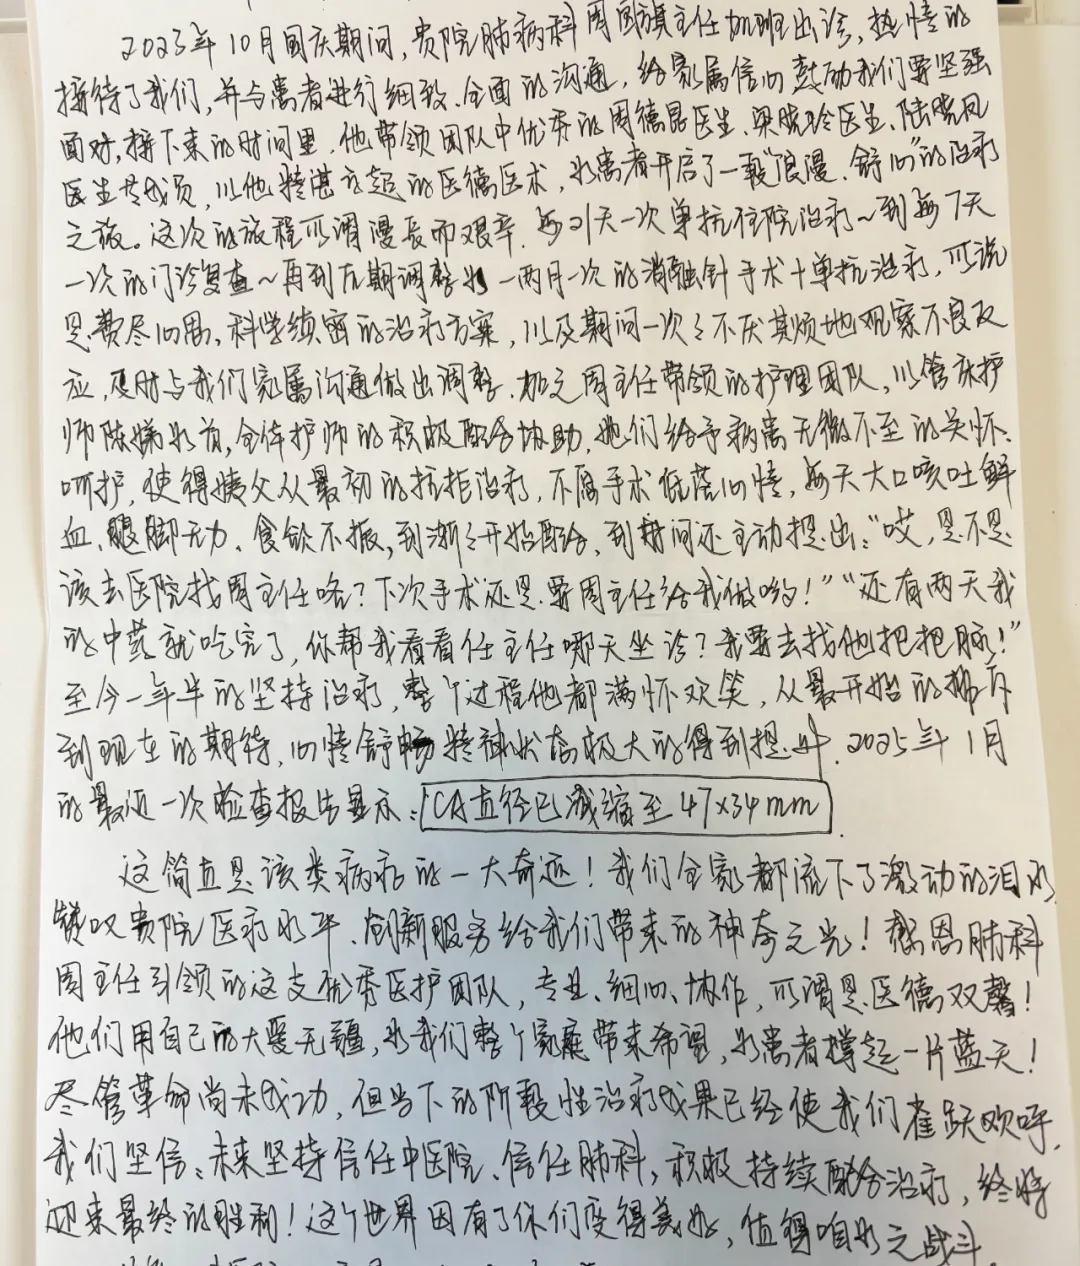 2023年10月国庆期间，贵院肺病科周国旗主任加班出诊，热情的
接待了我们，并与患者进行细致、全面的沟通，给家属信心鼓励我们要坚强
面对，接下来的时间里，他带领团队中优秀的周德昆医生、梁晓玲医生、陆晓凤
医生共成员，以他精湛的医德医术，为患者开启了一段“浪漫、舒心”的治疗
之旅。这次的旅程可谓漫长而艰辛，每21天一次单抗住院治疗～到每7天
一次的门诊复查～再到后期调整为一两月一次的消融针手术＋单抗治疗，可说
是费尽心思，科学缜密的治疗方案，以及期间一次々不厌其烦地观察不良反
应，及时与我们家属沟通做出调整，加之周主任带领的护理团队，以管床护
师陈娣为首，全体护师的积极配合协助，她们给予病患无微不至的关怀、
呵护，使得姨父从最初的抗拒治疗，不愿手术低落心情，每天大口咳吐鲜
血、腿脚无力、食欲不振，到渐々开始配合，到期间还主动提出：“哎，是不是
该去医院找周主任咯？下次手术还是要周主任给我做哟！”“还有两天我
的中药就吃完了，你帮我看看任主任哪天坐诊？我要去找他把把脉！”
至今一年半的坚持治疗，整个过程他都满怀欢笑，从最开始的排斥
到现在的期待，心情舒畅精神状态极大的得到提升，2025年1月
的最近一次检查报告显示：CA直径已减缩至47×34mm
这简直是该类病症的一大奇迹！我们全家都流下了激动的泪水，
赞叹贵院医疗水平、创新服务给我们带来的神奇之光！感恩肺科
周主任引领的这支优秀医护团队，专业、细心、协作，可谓是医德双馨！
他们用自己的大爱无疆，为我们整个家庭带来希望，为患者撑起一片蓝天！
尽管革命尚未成功，但当下的阶段性治疗成果已经使我们雀跃欢呼，
我们坚信：未来坚持信任中医院、信任肺科，积极持续配合治疗，终将
迎来最终的胜利！这个世界因有了你们变得美好，值得咱为之战斗